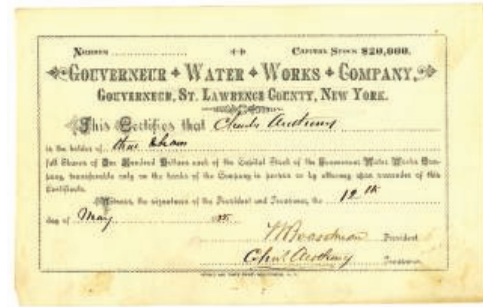 NUMBER CAPITAL STOCK $20,000.
GOUVERNEUR WATER WORKS COMPANY,
GOUVERNEUR, ST. LAWRENCE COUNTY, NEW YORK.
This Certifies that Charles Anthony
is the holder of Shares
full Shares of One Hundred Dollars each of the Capital Stock of the Gouverneur Water Works Com-
pany, transferable only on the books of the Company in person or by attorney upon surrender of this
Certificate.
Witness, the signatures of the President and Treasurer, the 12th
day of May
President
Chas Anthony Treasurer.